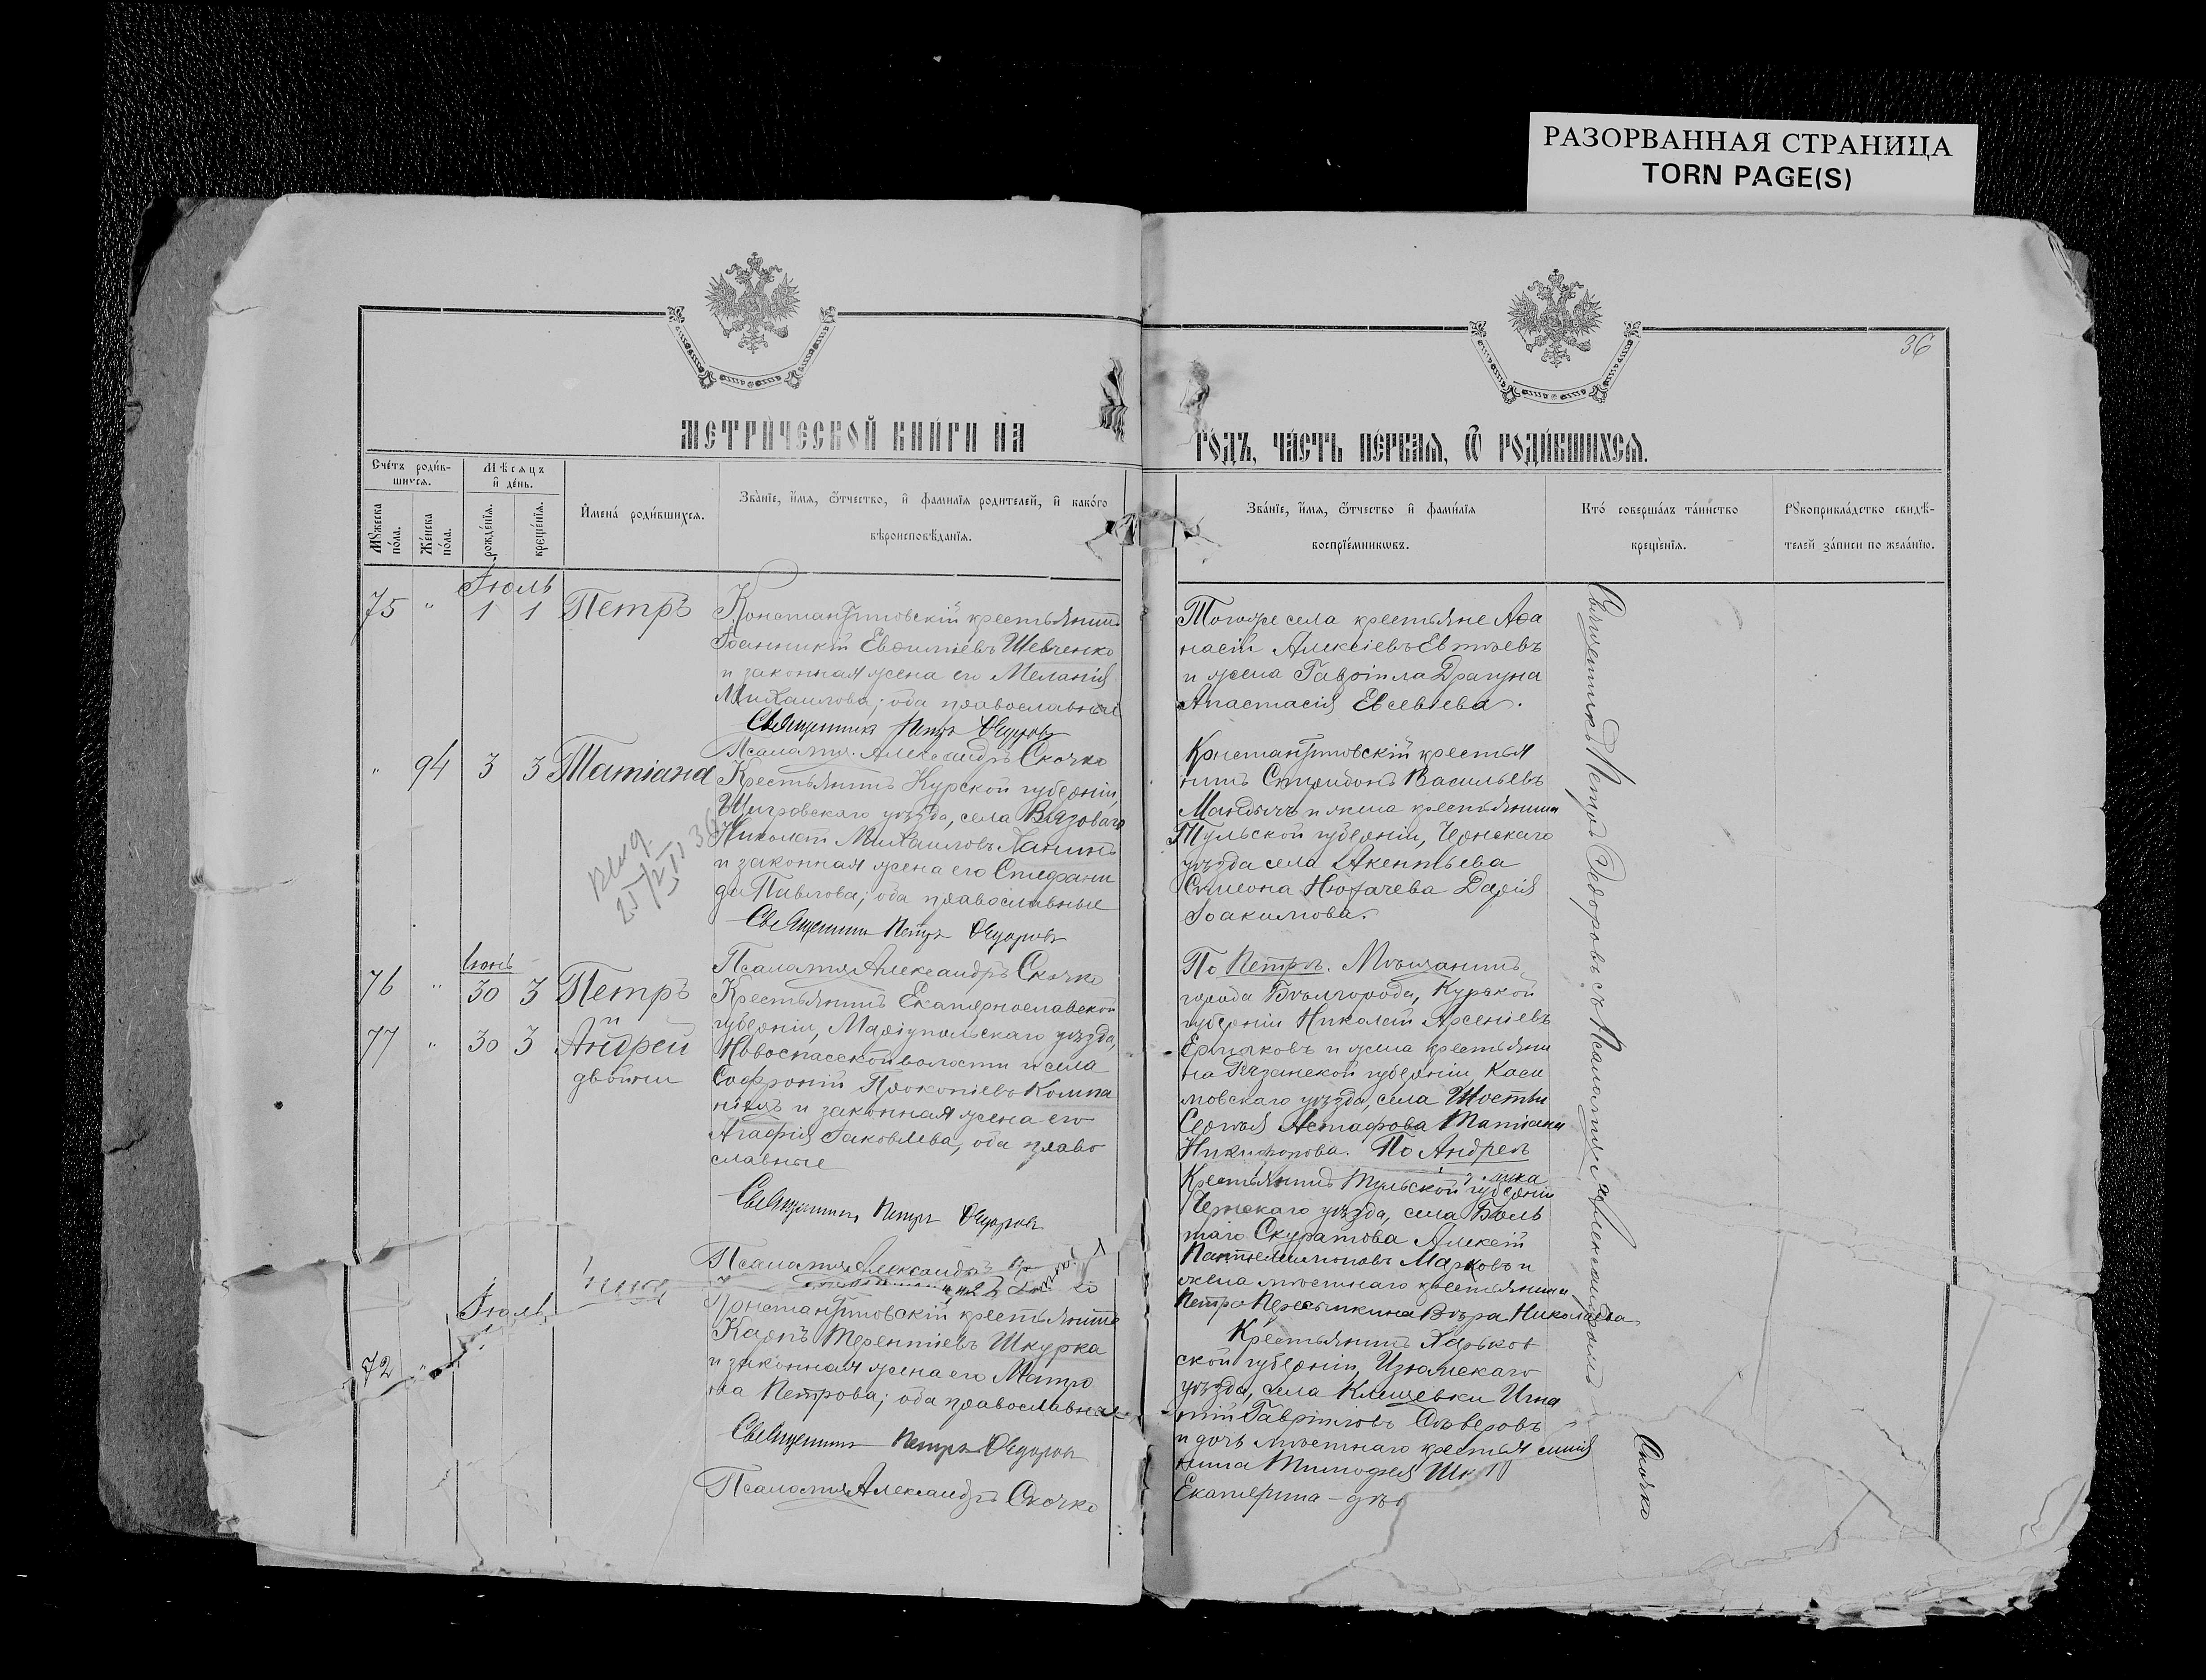 РАЗОРВАННАЯ СТРАНИЦА
TORN PAGE(S)
36
МЕТРИЧЕСКОЙ КНИГИ НА
ГОДЪ, ЧАСТЬ ПЕРВАЯ, Ѿ РОДИВШИХСЯ.
Счетъ родив-
шихся.
Мѣсяцъ
и день.
Мужеска
пола.
Женска
пола.
рожденїя.
крещенїя.
Имена родившихся.
Званїе, имя, ѿтчество, и фамилїя родителей, и какого
вѣроисповѣданїя.
Званїе, имя, ѿтчество и фамилїя
воспрїемниковъ.
Кто совершалъ таинство
крещенїя.
Рукоприкладство свидѣ-
телей записи по желанїю.
Іюль
75 " 1 1 Петръ
Константиновскій крестьянинъ
Іоанникій Евѳиміевъ Шевченко
и законная жена его Меланія
Михаилова; оба православные
Священникъ Петръ Ѳедоровъ
Псаломщ. Александръ Скочко
Тогоже села крестьяне Аѳа
насій Алексіевъ Евтѣевъ
и жена Гавріила Драгуна
Анастасія Евсевіева.
" 94 3 3 Татіана
Крестьянинъ Курской губерніи,
Щигровскаго уѣзда, села Вязоваго
Николай Михаиловъ Ланинъ
и законная жена его Стефани
да Павлова; оба православные
Священникъ Петръ Ѳедоровъ
Псаломщ Александръ Скочко
Константиновскій крестья
нинъ Спиридонъ Васильевъ
Мандычъ и жена крестьянина
Тульской губерніи, Чернскаго
уѣзда села
Симеона Нюхачева Дарія
Іоакимова.
Іюнь
76 " 30 3 Петръ
и
77 " 30 3 Андрей
двойни
Крестьянинъ Екатеринославской
губерніи, Маріупольскаго уѣзда,
Новоспасской волости и села
Софроній Прокопіевъ Компа
ніецъ и законная жена его
Агафія Іаковлева, оба право
славные
Священникъ Петръ Ѳедоровъ
Псаломщ Александръ
По Петрѣ. Мѣщанинъ
города Бѣлгорода, Курской
губерніи Николай Арсеніевъ
Ермаковъ и жена крестьяни
на Рязанской губерніи, Каси
мовскаго уѣзда, села Шостьи
Сергѣя Астафова Татіана
Никифорова. По Андреѣ
Крестьянинъ Тульской губерніи
Чернскаго уѣзда, села Боль
шаго Скуратова Алексій
Пантелеимоновъ Марковъ и
жена мѣстнаго крестьянина
Петра Пересыпкина Вѣра Николаева
Іюль
Константиновскій крестьянинъ
Карпъ Терентіевъ Шкурка
и законная жена его Матро
на Петрова; оба православные
Священникъ Петръ Ѳедоровъ
Псаломщ Александръ Скочко
Крестьянинъ Харьков
ской губерніи, Изюмскаго
уѣзда, села Клещевки Игна
тій Гавріиловъ Сѣверовъ
и дочь мѣстнаго крестья
нина Тимофея
Екатерина
Священникъ Петръ Ѳедоровъ съ Псаломщ. Александромъ Скочко